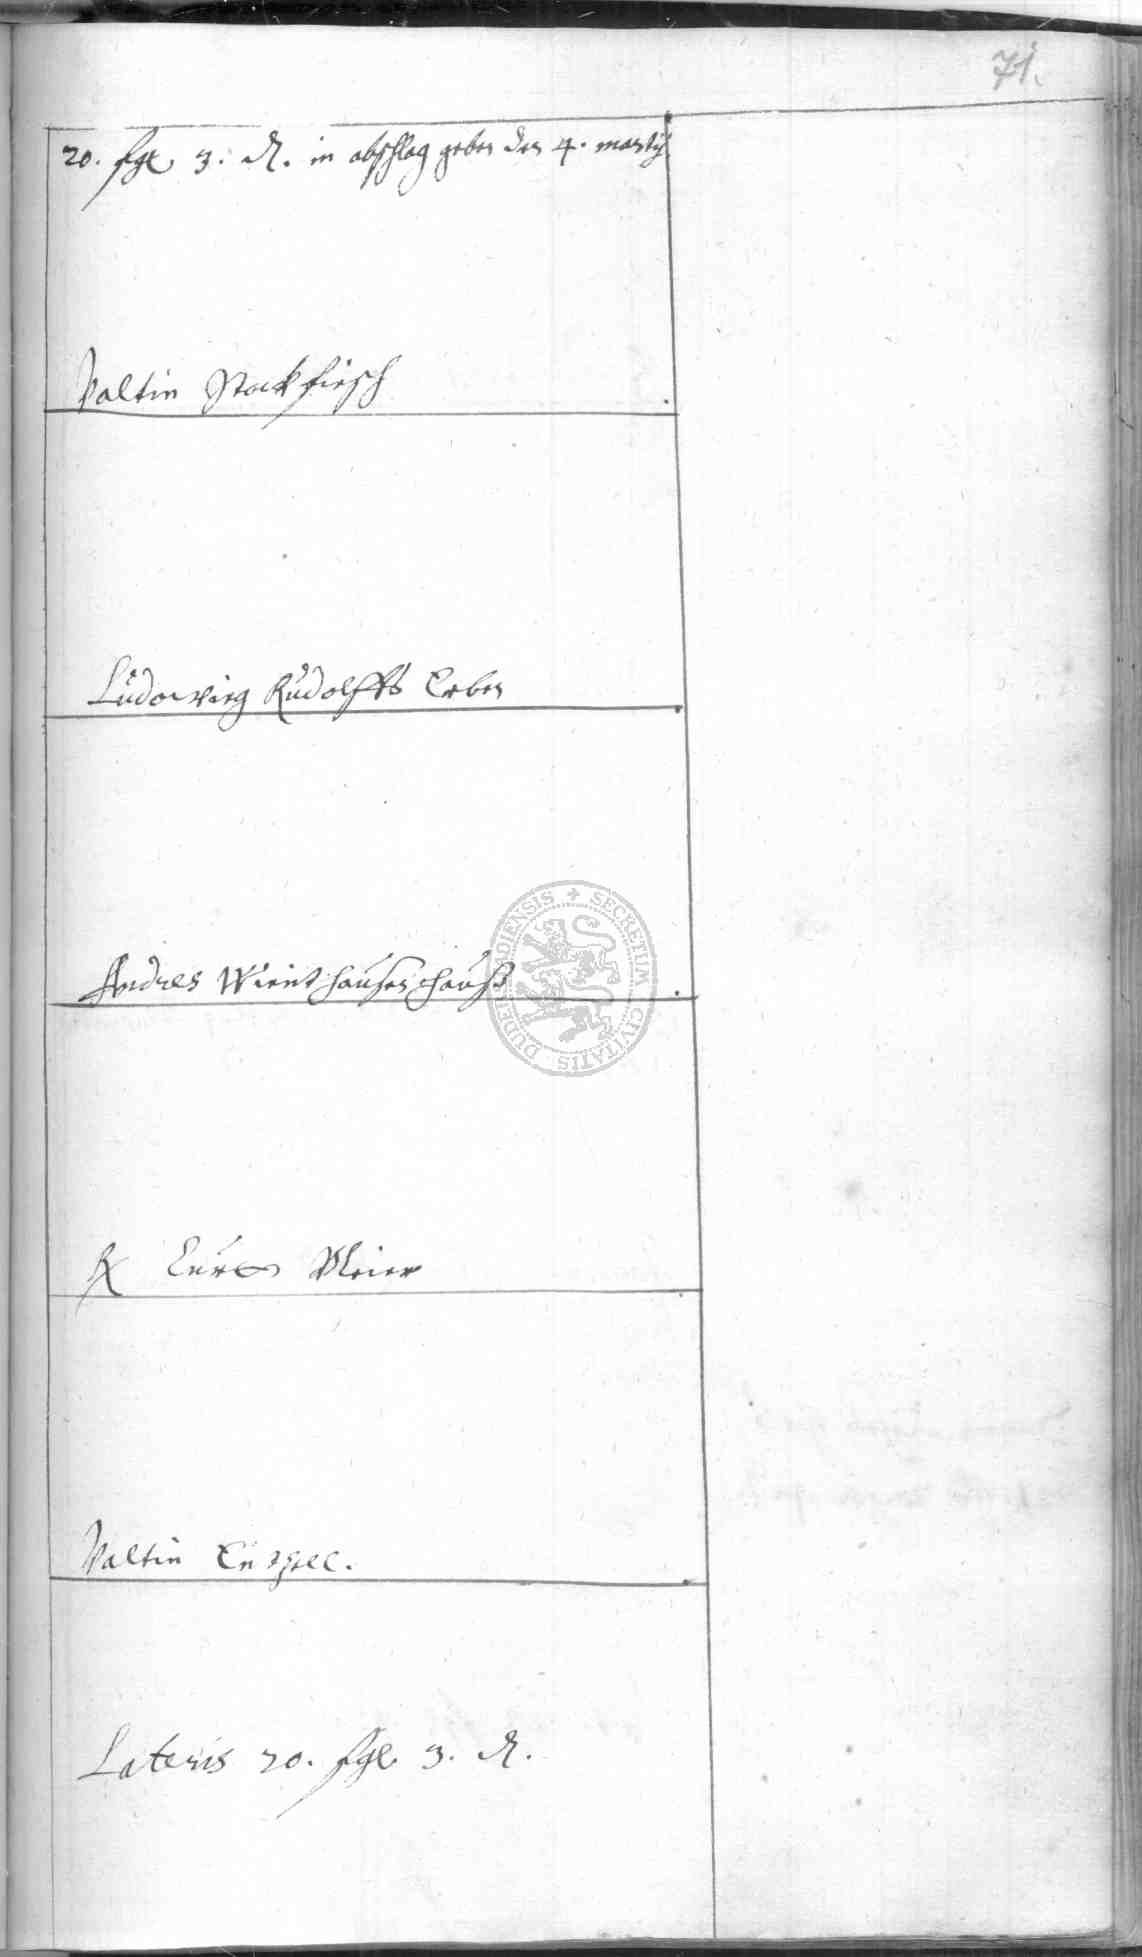 71.
20. ßgl 3. ₰. in abschlag geben den 4. martij
Valtin Stockfiesch
Lüdowieg Rudolffs Erben
Andres Wienthausen hauß
Curdt Meier
Valtin
Lateris 20. ßgl 3. ₰.
SECRETUM CIVITATIS DUDERSTADIENSIS